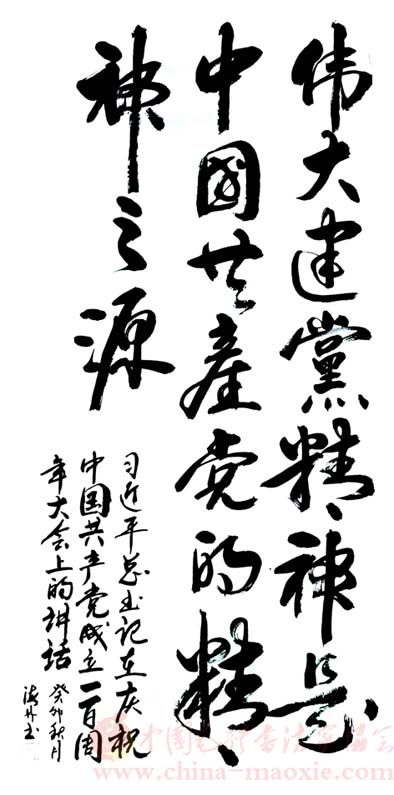 伟大建黨精神是
中國共產党的精
神之源
习近平总书记在庆祝
中国共产党成立一百周
年大会上的讲话
癸卯秋月
书
中國毛體書法家協會
www.china-maoxie.com